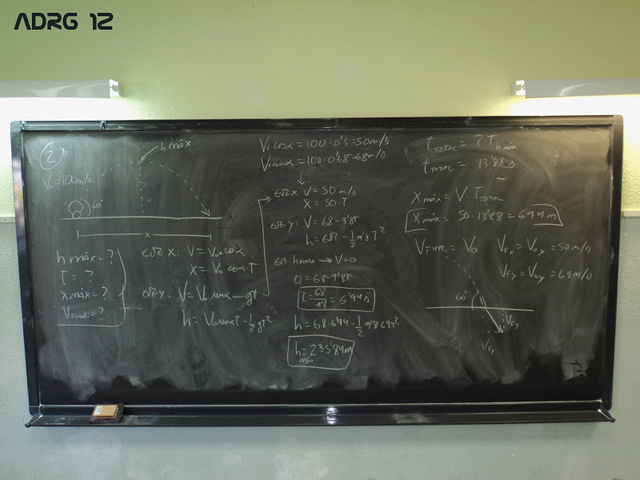 ADRG 12
2
h máx
V₀ = 100 m/s
60°
x
h máx = ?
t = ?
x máx = ?
V FINAL = ?
eje x: V = V₀ · cos α
x = V₀ cos α · T
eje y: V = V₀ sen α - gt
h = V₀ sen α T - 1/2 gt²
V₀ cos α = 100 · 0'5 = 50 m/s
V₀ sen α = 100 · 0'68 = 68 m/s
eje x V = 50 m/s
x = 50 · T
eje y: V = 68 - 9'8T
h = 68T - 1/2 9'8T²
en h máx → V = 0
0 = 68 - 9'8T
T = 68/9'8 = 6'94 s
h = 68 · 6'94 - 1/2 9'8 · 6'94²
h máx = 235'84 m
t TOTAL = 2 T h máx
t TOTAL = 13'88 s
x máx = V T TOTAL
x máx = 50 · 13'88 = 694 m
V FINAL = V₀
V Fx = V₀x = 50 m/s
V Fy = V₀y = 68 m/s
60
V Fy
V Fx